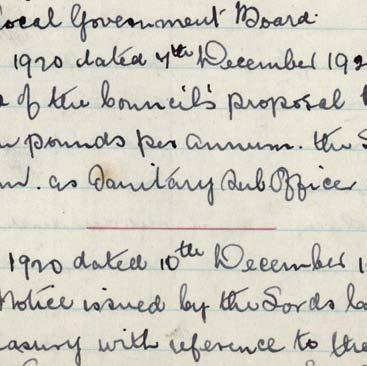 Local Government Board.
1920 dated 7th December 192
of the Council's proposal
pounds per annum. the S
as Sanitary Sub Officer
1920 dated 10th December 1
Notice issued by the Lords
with reference to the